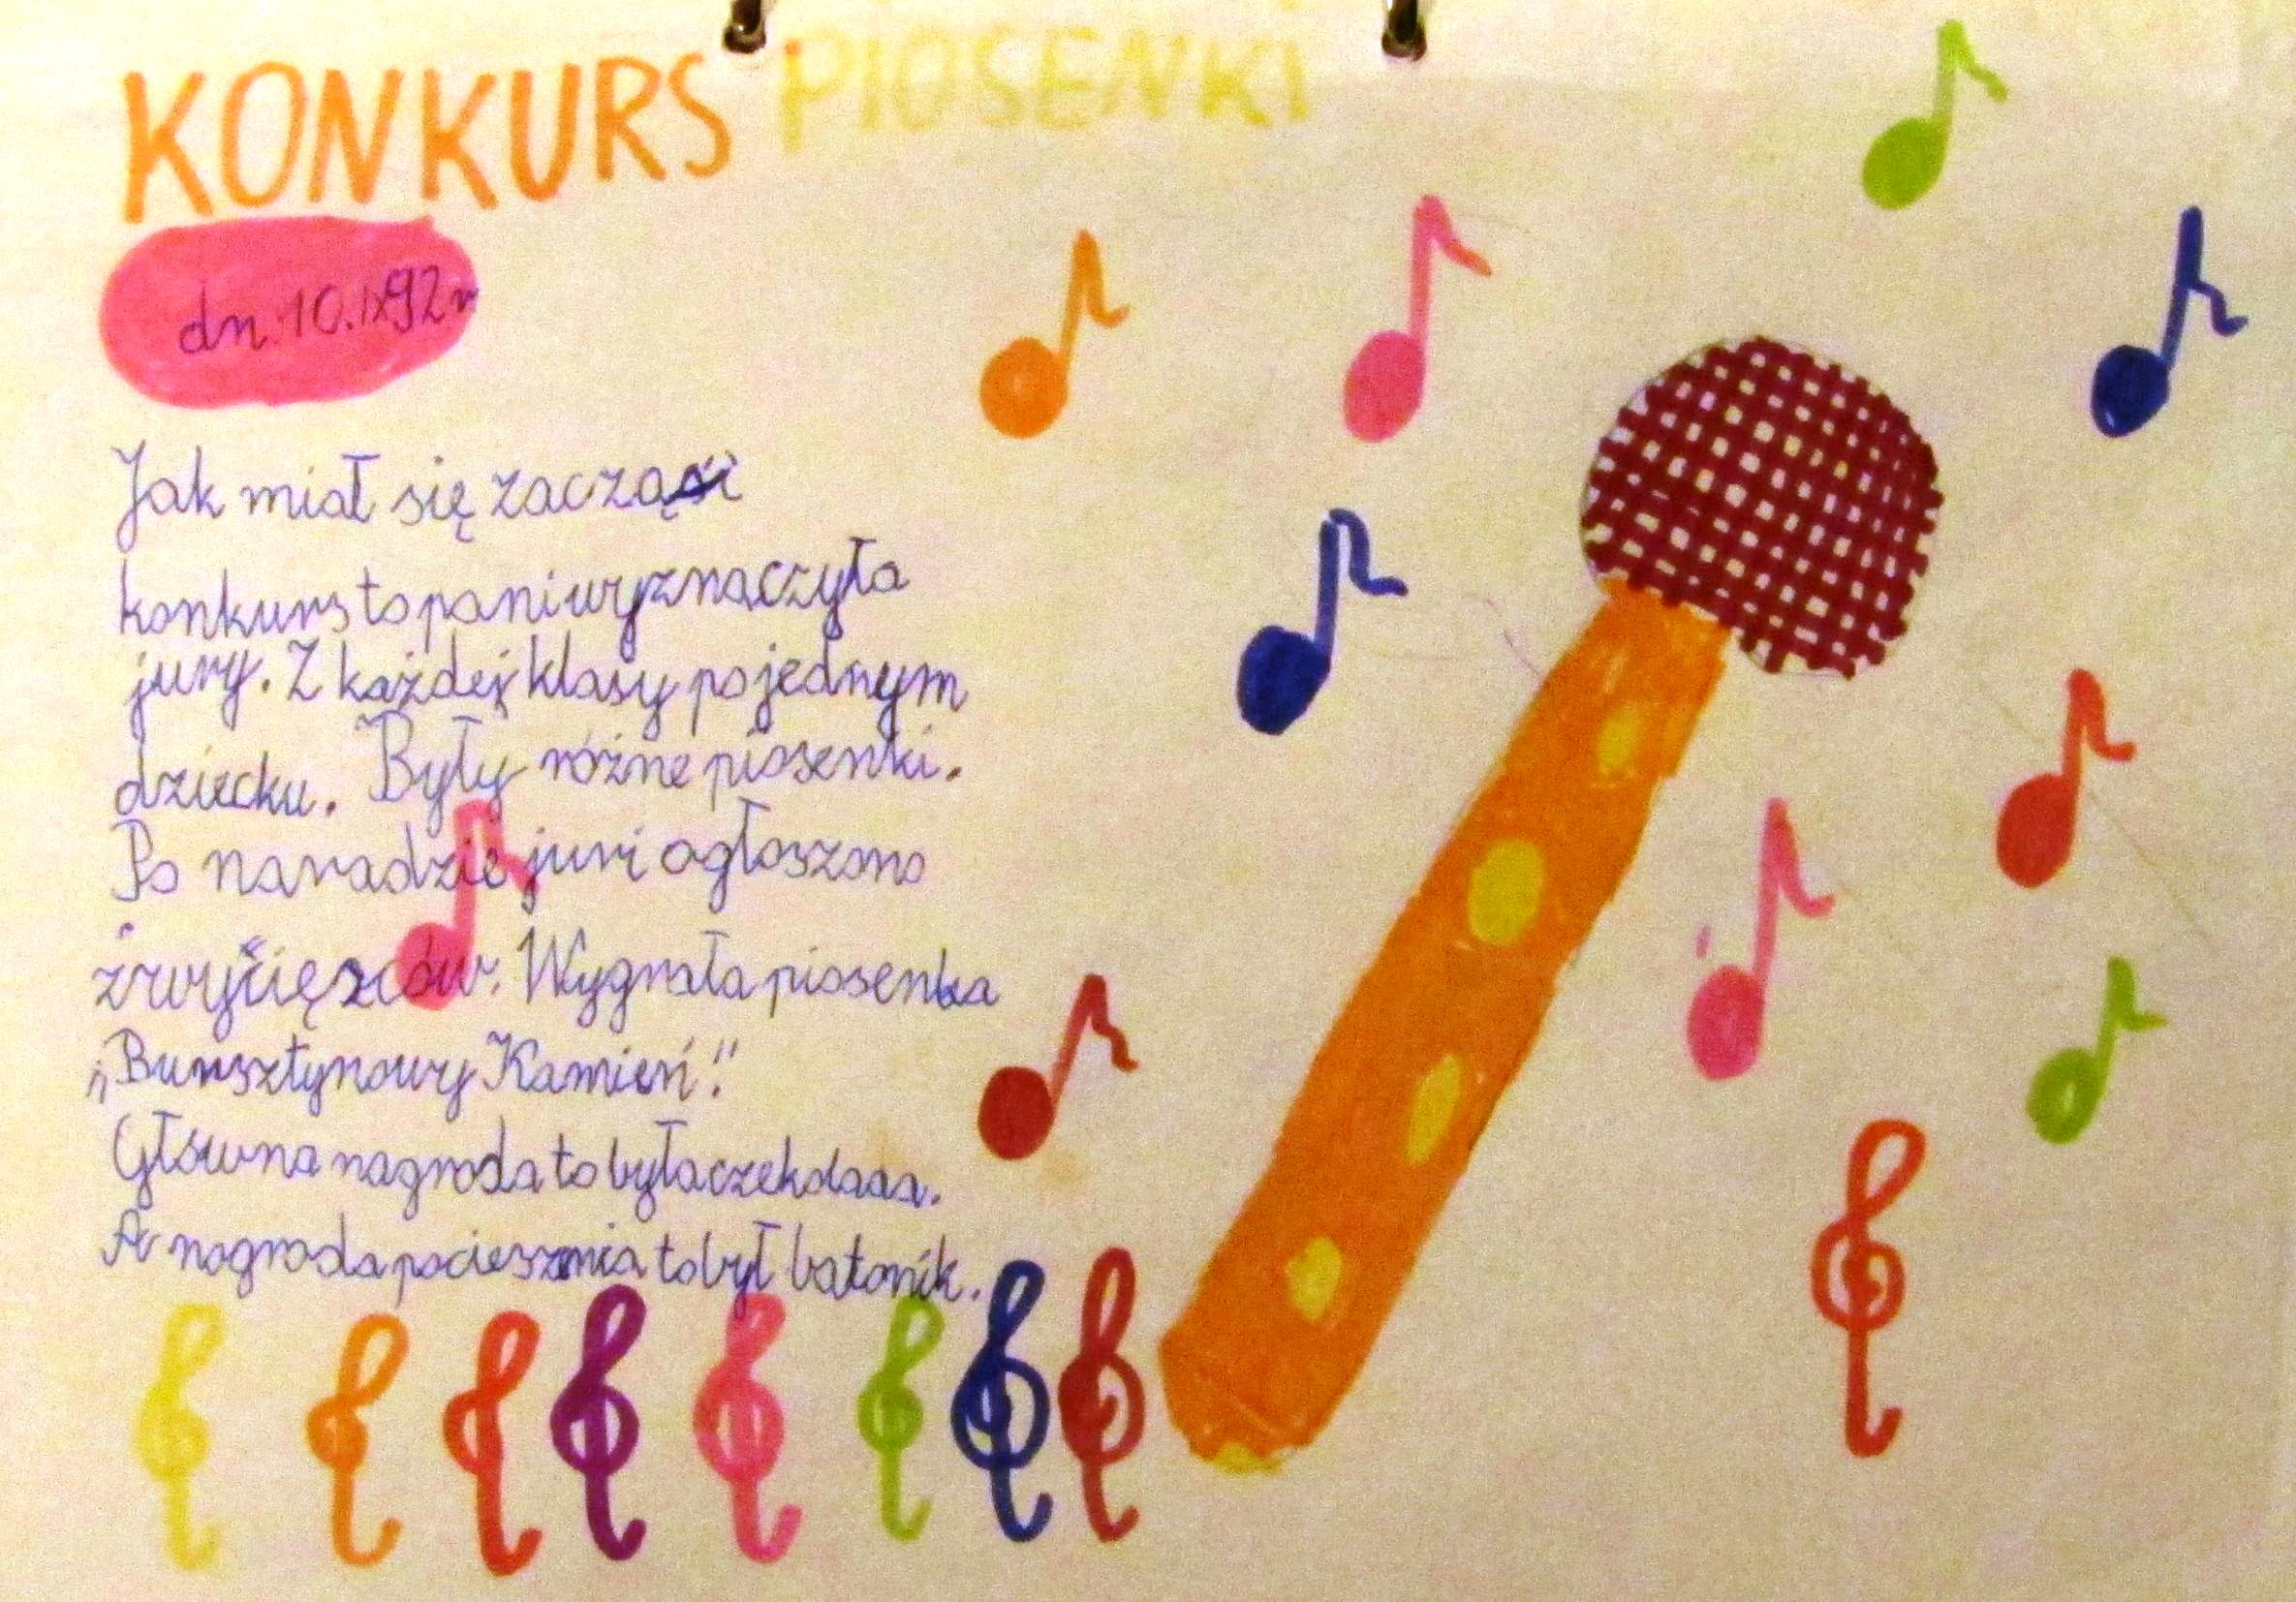 KONKURS PIOSENKI
dn. 10.IX92r
Jak miał się zacząć
konkurs to pani wyznaczyła
jury. Z każdej klasy po jednym
dziecku. Były różne piosenki.
Po naradzie juri ogłoszono
zwycięzców. Wygrała piosenka
„Bursztynowy Kamień!"
Główna nagroda to była czekolaaa.
A nagroda pocieszenia to był batonik.